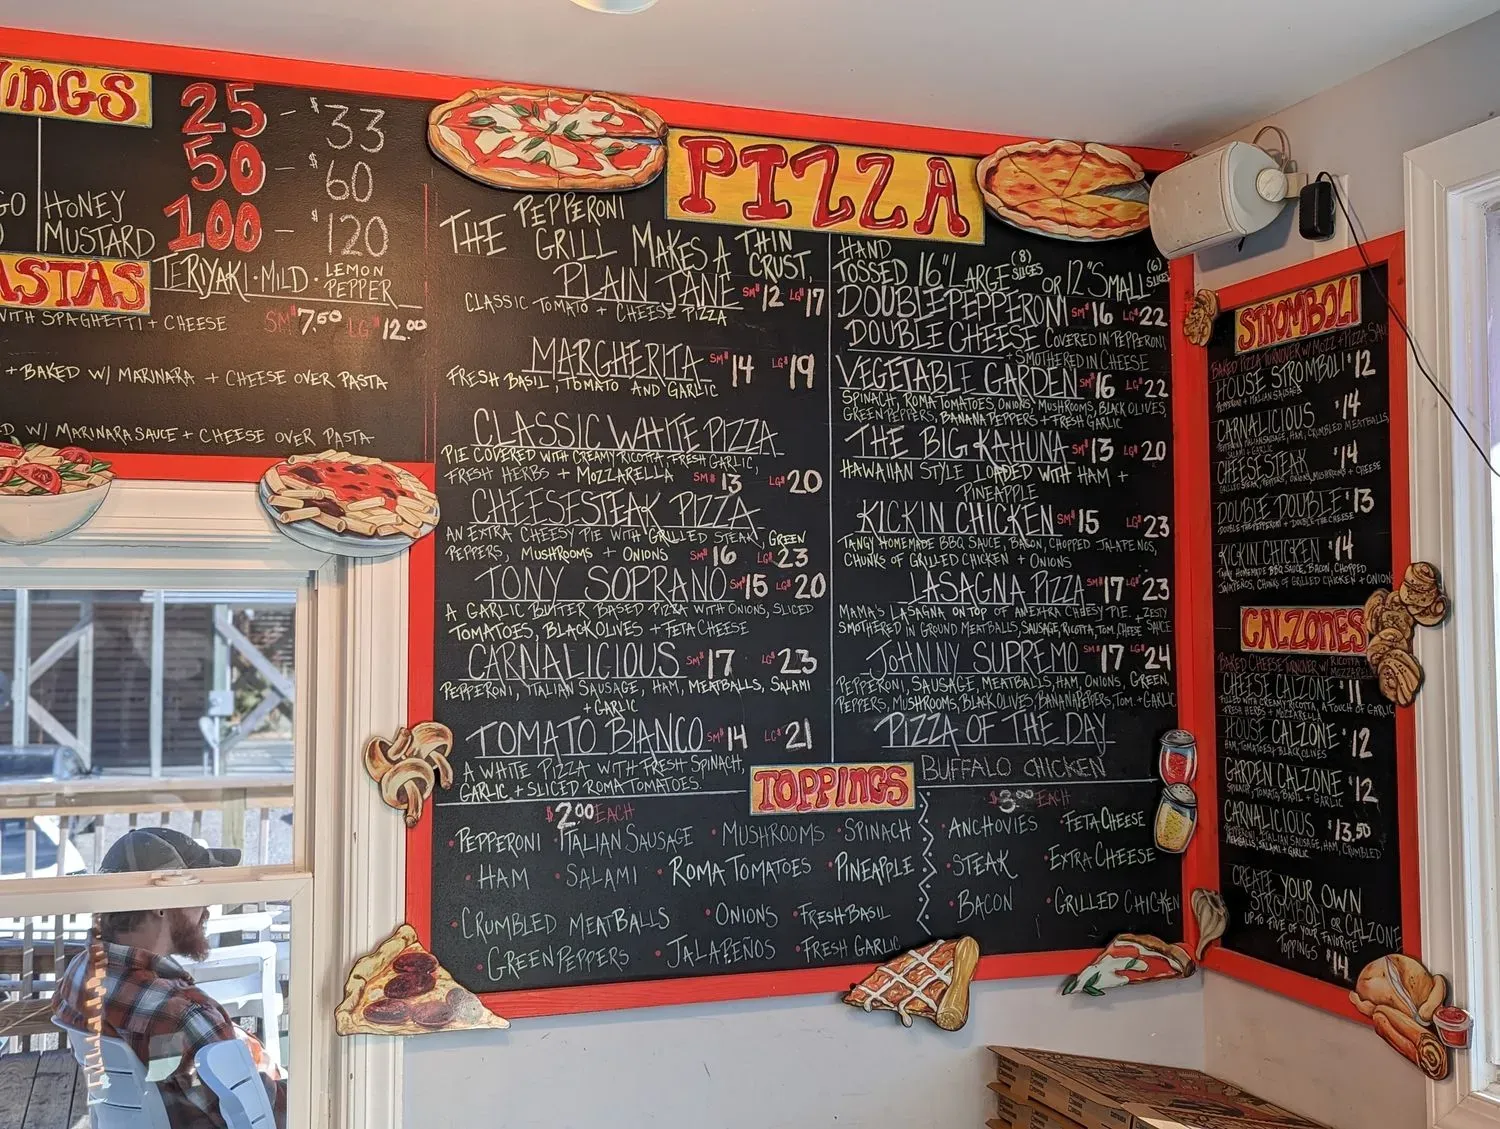 WINGS
25 - $33
50 - $60
100 - $120
GO
HONEY
MUSTARD
TERIYAKI · MILD · LEMON PEPPER
PASTAS
WITH SPAGHETTI + CHEESE SM $7.50 LG $12.00
+ BAKED W/ MARINARA + CHEESE OVER PASTA
W/ MARINARA SAUCE + CHEESE OVER PASTA
PIZZA
THE PEPPERONI GRILL MAKES A THIN CRUST,
HAND TOSSED 16" LARGE (8) SLICES OR 12" SMALL (6) SLICES
PLAIN JANE SM $12 LG $17
CLASSIC TOMATO + CHEESE PIZZA
MARGHERITA SM $14 LG $19
FRESH BASIL, TOMATO AND GARLIC
CLASSIC WHITE PIZZA
PIE COVERED WITH CREAMY RICOTTA, FRESH GARLIC,
FRESH HERBS + MOZZARELLA SM $13 LG $20
CHEESESTEAK PIZZA
AN EXTRA CHEESY PIE WITH GRILLED STEAK, GREEN
PEPPERS, MUSHROOMS + ONIONS SM $16 LG $23
TONY SOPRANO SM $15 LG $20
A GARLIC BUTTER BASED PIZZA WITH ONIONS, SLICED
TOMATOES, BLACK OLIVES + FETA CHEESE
CARNALICIOUS SM $17 LG $23
PEPPERONI, ITALIAN SAUSAGE, HAM, MEATBALLS, SALAMI
+ GARLIC
TOMATO BIANCO SM $14 LG $21
A WHITE PIZZA WITH FRESH SPINACH,
GARLIC + SLICED ROMA TOMATOES.
DOUBLE PEPPERONI SM $16 LG $22
DOUBLE CHEESE COVERED IN PEPPERONI
+ SMOTHERED IN CHEESE
VEGETABLE GARDEN SM $16 LG $22
SPINACH, ROMA TOMATOES, ONIONS, MUSHROOMS, BLACK OLIVES,
GREEN PEPPERS, BANANA PEPPERS + FRESH GARLIC
THE BIG KAHUNA SM $13 LG $20
HAWAIIAN STYLE LOADED WITH HAM +
PINEAPPLE
KICKIN CHICKEN SM $15 LG $23
TANGY HOMEMADE BBQ SAUCE, BACON, CHOPPED JALAPENOS,
CHUNKS OF GRILLED CHICKEN + ONIONS
LASAGNA PIZZA SM $17 LG $23
MAMA'S LASAGNA ON TOP OF AN EXTRA CHEESY PIE
SMOTHERED IN GROUND MEATBALLS, SAUSAGE, RICOTTA, TOM, CHEESE + ZESTY SAUCE
JOHNNY SUPREMO SM $17 LG $24
PEPPERONI, SAUSAGE, MEATBALLS, HAM, ONIONS, GREEN
PEPPERS, MUSHROOMS, BLACK OLIVES, BANANA PEPPERS, TOM. + GARLIC
PIZZA OF THE DAY
BUFFALO CHICKEN
TOPPINGS
$2.00 EACH
· PEPPERONI · ITALIAN SAUSAGE · MUSHROOMS · SPINACH
· HAM · SALAMI · ROMA TOMATOES · PINEAPPLE
· CRUMBLED MEATBALLS · ONIONS · FRESH BASIL
· GREEN PEPPERS · JALAPEÑOS · FRESH GARLIC
$3.00 EACH
· ANCHOVIES · FETA CHEESE
· STEAK · EXTRA CHEESE
· BACON · GRILLED CHICKEN
STROMBOLI
BAKED PIZZA TURNOVER W/ MOZZ + PIZZA SAU
HOUSE STROMBOLI $12
PEPPERONI + ITALIAN SAUSAGE
CARNALICIOUS $14
PEPPERONI, ITALIAN SAUSAGE, HAM, CRUMBLED MEATBALLS,
SALAMI + GARLIC
CHEESESTEAK $14
GRILLED STEAK, PEPPERS, ONIONS, MUSHROOMS + CHEESE
DOUBLE DOUBLE $13
DOUBLE THE PEPPERONI + DOUBLE THE CHEESE
KICKIN CHICKEN $14
TANGY HOMEMADE BBQ SAUCE, BACON, CHOPPED
JALAPEÑOS, CHUNKS OF GRILLED CHICKEN + ONIONS
CALZONES
BAKED CHEESE TURNOVER W/ RICOTTA
CHEESE CALZONE $11
FILLED WITH CREAMY RICOTTA, A TOUCH OF GARLIC,
FRESH HERBS + MOZZARELLA
HOUSE CALZONE $12
HAM, TOMATOES + BLACK OLIVES
GARDEN CALZONE $12
SPINACH, TOMATO, BASIL + GARLIC
CARNALICIOUS $13.50
PEPPERONI, ITALIAN SAUSAGE, HAM, CRUMBLED
MEATBALLS, SALAMI + GARLIC
CREATE YOUR OWN
STROMBOLI OR CALZONE
UP TO FIVE OF YOUR FAVORITE
TOPPINGS
$14